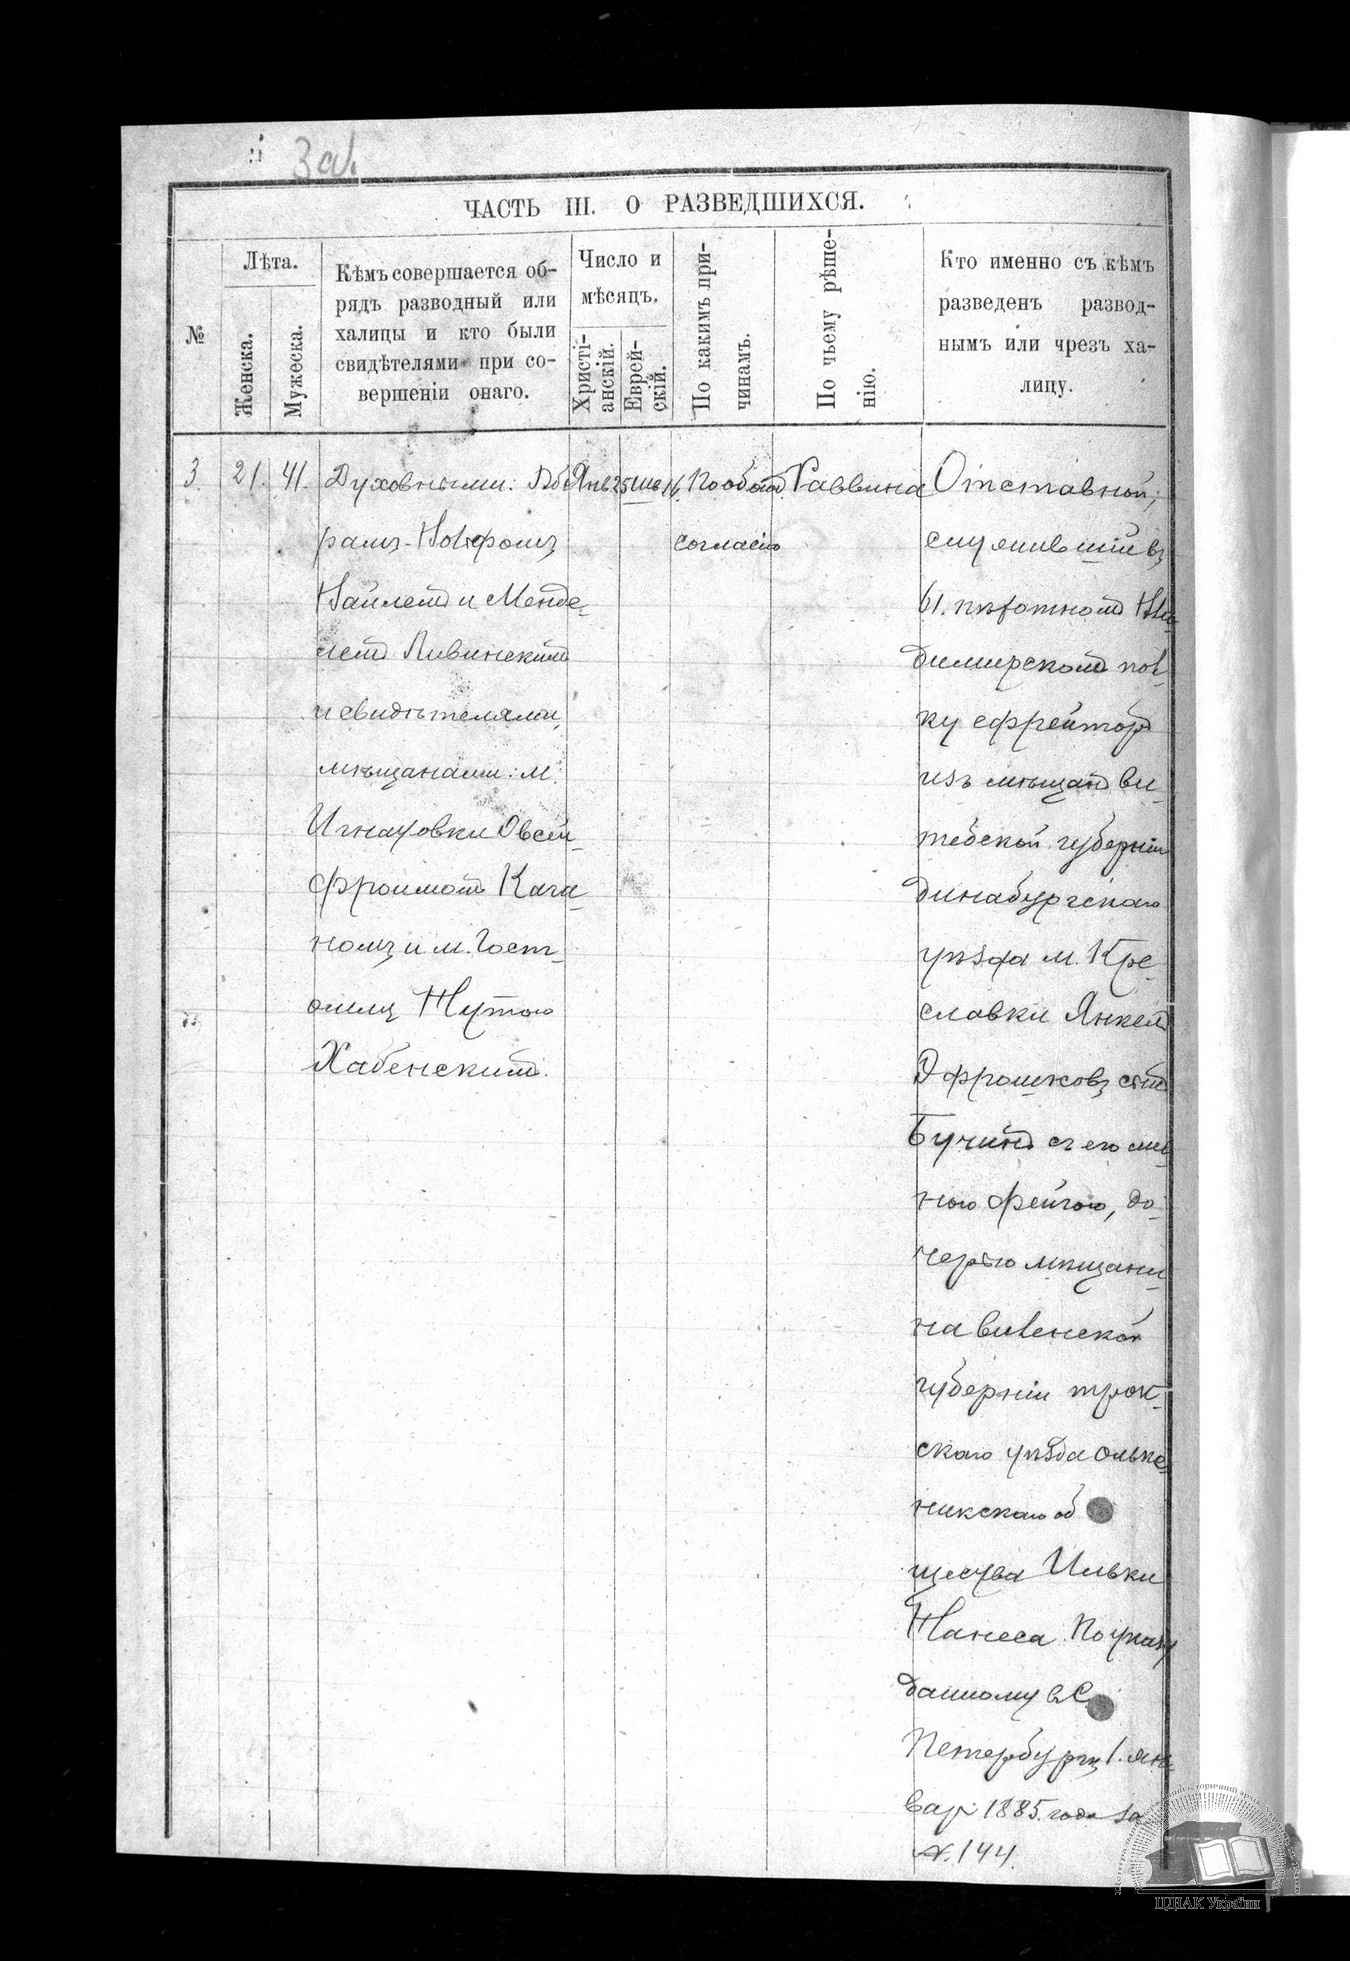 3 об.
ЧАСТЬ III. О РАЗВЕДШИХСЯ.
№
Лѣта.
Женска.
Мужеска.
Кѣмъ совершается об-
рядъ разводный или
халицы и кто были
свидѣтелями при со-
вершеніи онаго.
Число и
мѣсяцъ.
Христі-
анскій.
Еврей-
скій.
По какимъ при-
чинамъ.
По чьему рѣше-
нію.
Кто именно съ кѣмъ
разведенъ развод-
нымъ или чрезъ ха-
лицу.
3. 21. 41.
Духовными: Аб
рамъ-Вольфомъ
и Менде-
лемъ Ливинскимъ
и свидѣтелями
мѣщанами: м.
Игнатовки Овсей-
Фроимомъ Кага-
номъ и м. Гост-
омля Нутою
Хабенскимъ.
Янв 25 Шв 16
По обоюд.
согласію
Раввина
Отставной,
служившій въ
61. пѣхотномъ Вла-
димирскомъ пол-
ку ефрейторъ
изъ мѣщанъ Ви-
тебской губерніи
Динабургскаго
уѣзда м. Кре-
славки Янкель
с его же-
ною Фейгою, до-
черью мѣщани-
на Виленской
губерніи Трок-
скаго уѣзда Ольке-
никскаго об
щества Ицьки
Танеса. По указу
данному въ С.
Петербургѣ 1. ян-
варя 1885. года за
№. 144.
ЦДІАК України